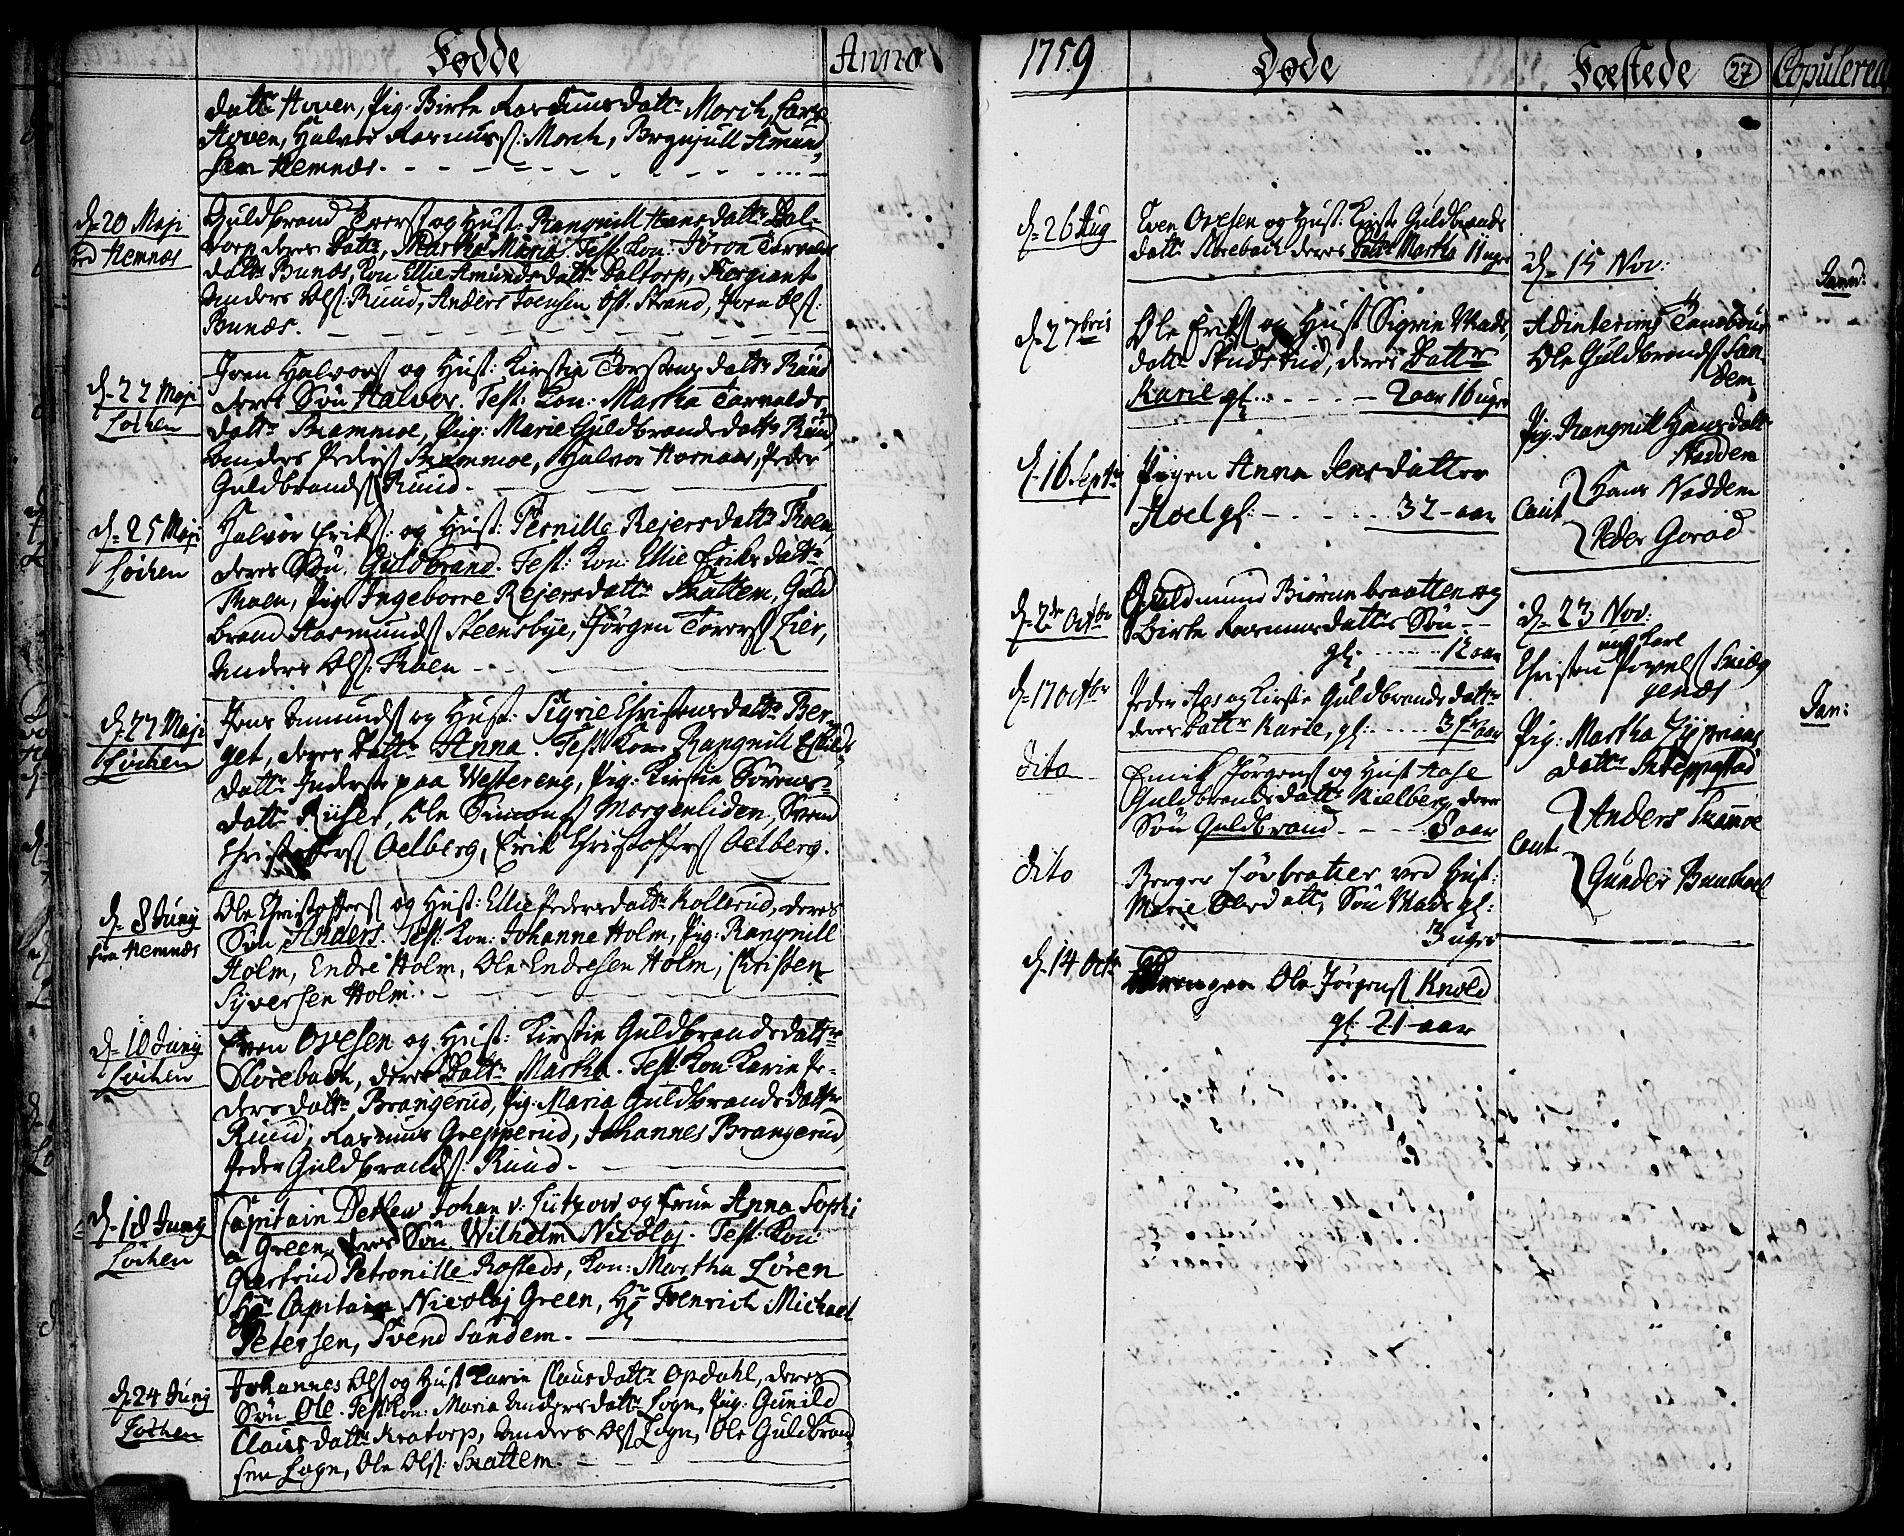 Fødde
Anno
dattr Hoven, Pig: Birte Rasmusdattr Morch, Lars
Hoven, Halvor Rasmuss: Morch, Brynjull Amund
sen Hemnæs.
d. 20 Maji
ved Hemnæs
Guldbrand Iverss og Hust: Rangnill Hansdattr Dal-
torp deres Dattr Martha Maria. Test: Kon: Jøron Torvalds
dattr Bunæs, Kon: Ellie Amundsdattr Daltorp, Sergiant
Anders Olss: Ruud, Anders Joensen Strand, Iven Olss:
Bunæs.
d. 22 Maji
Løchen
Iven Halvorss og Hust: Kirstie Torstensdattr Ruud
deres Søn Halvor. Test: Kon: Martha Torvalds
dattr Brammoe, Pig: Marie Guldbrandsdattr Ruud
Anders Pederss Brammoe, Halvor Hornaas, Peder
Guldbrandss Ruud.
d. 25 Maji
Løchen
Halvor Erikss: og Hust: Pernille Rejersdattr Thoen,
deres Søn Guldbrand. Test: Kon: Ellie Eriksdattr
Thoen, Pig Ingeborre Rejersdattr Skattem, Guld
brand Aasmundss Steensbye, Jørgen Torerss Lier,
Anders Olss: Thoen
d. 27 Maji
Løchen
Jens Amundss og Hust: Sigrie Christensdattr Ber-
get, deres Dattr Anna. Test: Kone Rangnill Eskilds
dattr Inderst paa Westereng, Pig: Kirstie Sørens-
dattr Riiser, Ole Simonss Morgenliden, Svend
Christofferss Oelberg, Erik Christofferss Oelberg.
d. 8 Junij
fra Hemnæs
Ole Christofferss og Hust: Ellie Pedersdattr Kollerud, deres
Søn Anders. Test: Kon: Johanne Holm, Pig: Rangnill
Holm, Endre Holm, Ole Endresen Holm, Christen
Syversen Holm.
d. 10 Junij
Løchen
Even Ovesen og Hust: Kirstie Guldbrandsdattr
Slorebach, deres Dattr Martha. Test: Kon: Karie Pe-
dersdattr Brangerud, Pig: Maria Guldbrandsdattr
Ruud, Rasmus Grepperud, Johannes Brangerud,
Peder Guldbrandss: Ruud.
d. 18 Junij
Løchen
Capitain Detlew Johan v: Lützow og Frue Anna Sophi
a Green, deres Søn Wilhelm Nicolaj. Test: Kon:
Giertrud Petronille Rosteds, Kon: Martha Løren
Hr Capitain Nicolaj Green, Hr Fenrich Michael
Petersen, Svend Sandem.
d. 24 Junij
Løchen
Johannes Olss og Hust Karie Clausdattr Opdahl, deres
Søn Ole. Test: Kon: Maria Andersdattr Logn, Pig: Gunild
Clausdattr Krotorp, Anders Olss Logn, Ole Guldbrand
sen Logn, Ole Olss: Skattem.
1759
Døde
Fæstede
27
Copulered
d. 26 Aug
Even Ovesen og Hust: Kirstie Guldbrands
dattr Slorebach deres Dattr Martha 11 uger
d. 2 7bris
Ole Erikss og Hust Sigrie Mads
dattr Studsrud, deres Dattr
Karie gl: 2 aar 16 uger
d. 16 Septr
Pigen Anna Jensdatter
Hoel gl: 32 aar
d. 2de Octbr
Guldmund Biørnebraatten og
Birte Rasmusdatters Søn
gl: 12 aar
d. 17 Octbr
Peder Aas og Kirstie Guldbrandsdattr
deres Dattr Karie, gl: 3 fr aar
dito
Emik Jørgenss og Hust Aase
Guldbrandsdattr Kielberg, deres
Søn Guldbrand 8 aar
dito
Berger Løvbratier ved Hust:
Marie Olesdatt, Søn Mads gl:
3 uger
d. 14 Octr
Drengen Ole Jørgenss Knold
gl: 21 aar
d. 15 Nov:
Adinterims Tambour
Ole Guldbrandss San
dem
Pig: Rangnill Hansdattr
Nadden
Caut
Hans Nadden
Peder Goraad
d. 23 Nov:
ung Karl
Christen Povelss Snieg
genæs
Pig: Martha Syprians
dattr Snteppstad
Caut
Anders Skamoe
Gunder Bunkoel
Janu:
Jan: